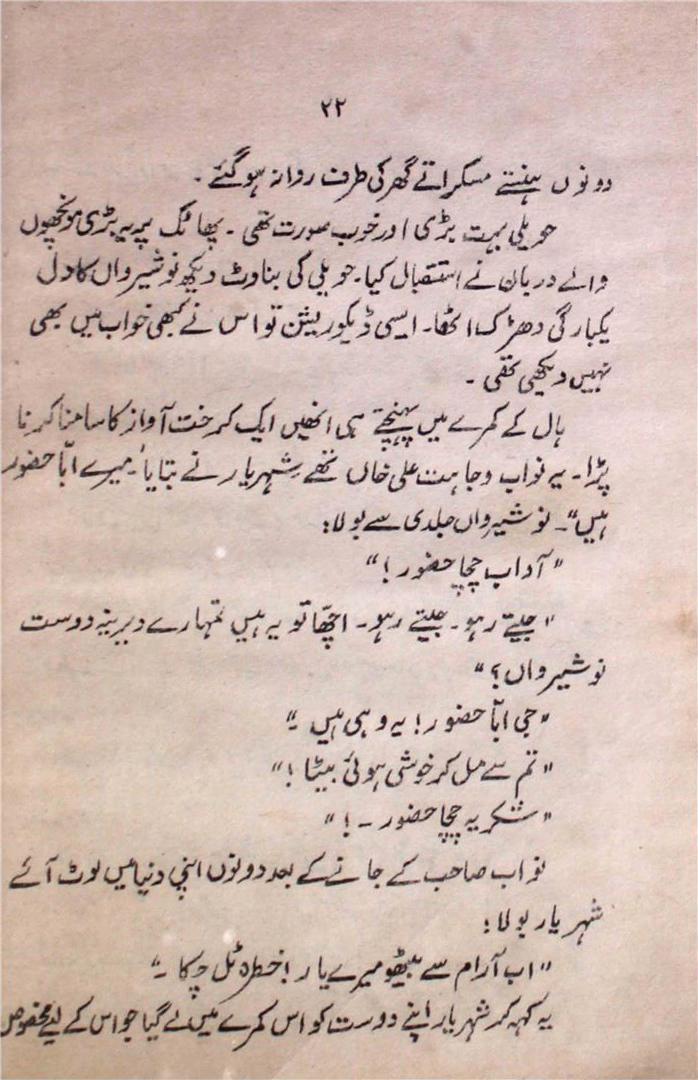 ۲۲
دونوں ہنستے مسکراتے گھر کی طرف روانہ ہوگئے ۔
حویلی بہت بڑی اور خوب صورت تھی ۔ پھاٹک پہ بڑی مونچھوں
والے دربان نے استقبال کیا۔ حویلی کی بناوٹ دیکھ نوشیرواں کا دل
یکبارگی دھڑک اٹھا۔ ایسی ڈیکوریشن تو اس نے کبھی خواب میں بھی
نہیں دیکھی تھی ۔
ہال کے کمرے میں پہنچتے ہی انھیں ایک کرخت آواز کا سامنا کرنا
پڑا۔ یہ نواب وجاہت علی خاں تھے شہریار نے بتایا "میرے ابّا حضور
ہیں"۔ نوشیرواں جلدی سے بولا:
"آداب چچا حضور !"
"جیتے رہو ۔ جیتے رہو۔ اچھّا تو یہ ہیں تمہارے دیرینہ دوست
نوشیرواں؟"
"جی ابّا حضور! یہ وہی ہیں ۔"
"تم سے مل کر خوشی ہوئی بیٹا !"
"شکریہ چچا حضور ۔ !"
نواب صاحب کے جانے کے بعد دونوں اپنی دنیا میں لوٹ آئے
شہریار بولا:
"اب آرام سے بیٹھو میرے یار ! خطرہ ٹل چکا ۔"
یہ کہہ کر شہریار اپنے دوست کو اس کمرے میں لے گیا جو اس کے لیے مخصوص